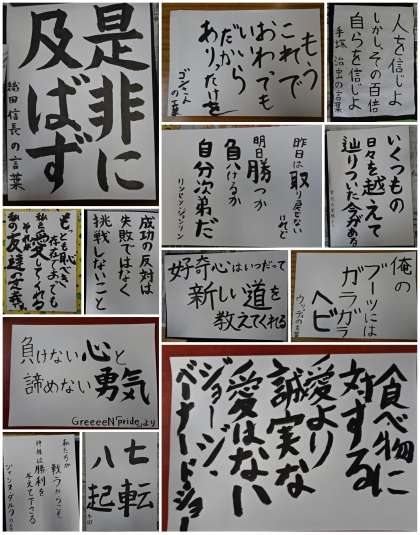 是非に
及ばず
織田信長の言葉
もう
これで
おわっても
いい
だから
ありったけを
ゴンさん
の言葉
人を信じよ
しかし、その百倍
自らを信じよ
手塚 治虫の言葉
昨日は取り返せない
けれど
明日勝つか
負けるか
自分次第だ
リンドン・ジョンソン
いくつもの
日々を越えて
辿りついた今がある
もっとも恥べき
存在
私を愛してくれる
私の友達
成功の反対は
失敗ではなく
挑戦しないこと
好奇心はいつだって
新しい道を
教えてくれる
俺の
ブーツには
ガラガラ
ヘビ
ウッディの言葉
負けない心と
諦めない勇気
GreeeeN「pride」より
食べ物に
対する
愛より
誠実な
愛はない
ジョージ・
バーナード・ショー
私たちが
戦うからこそ
神様は勝利を
与えて下さる
ジャンヌ・ダルク
七転
八起